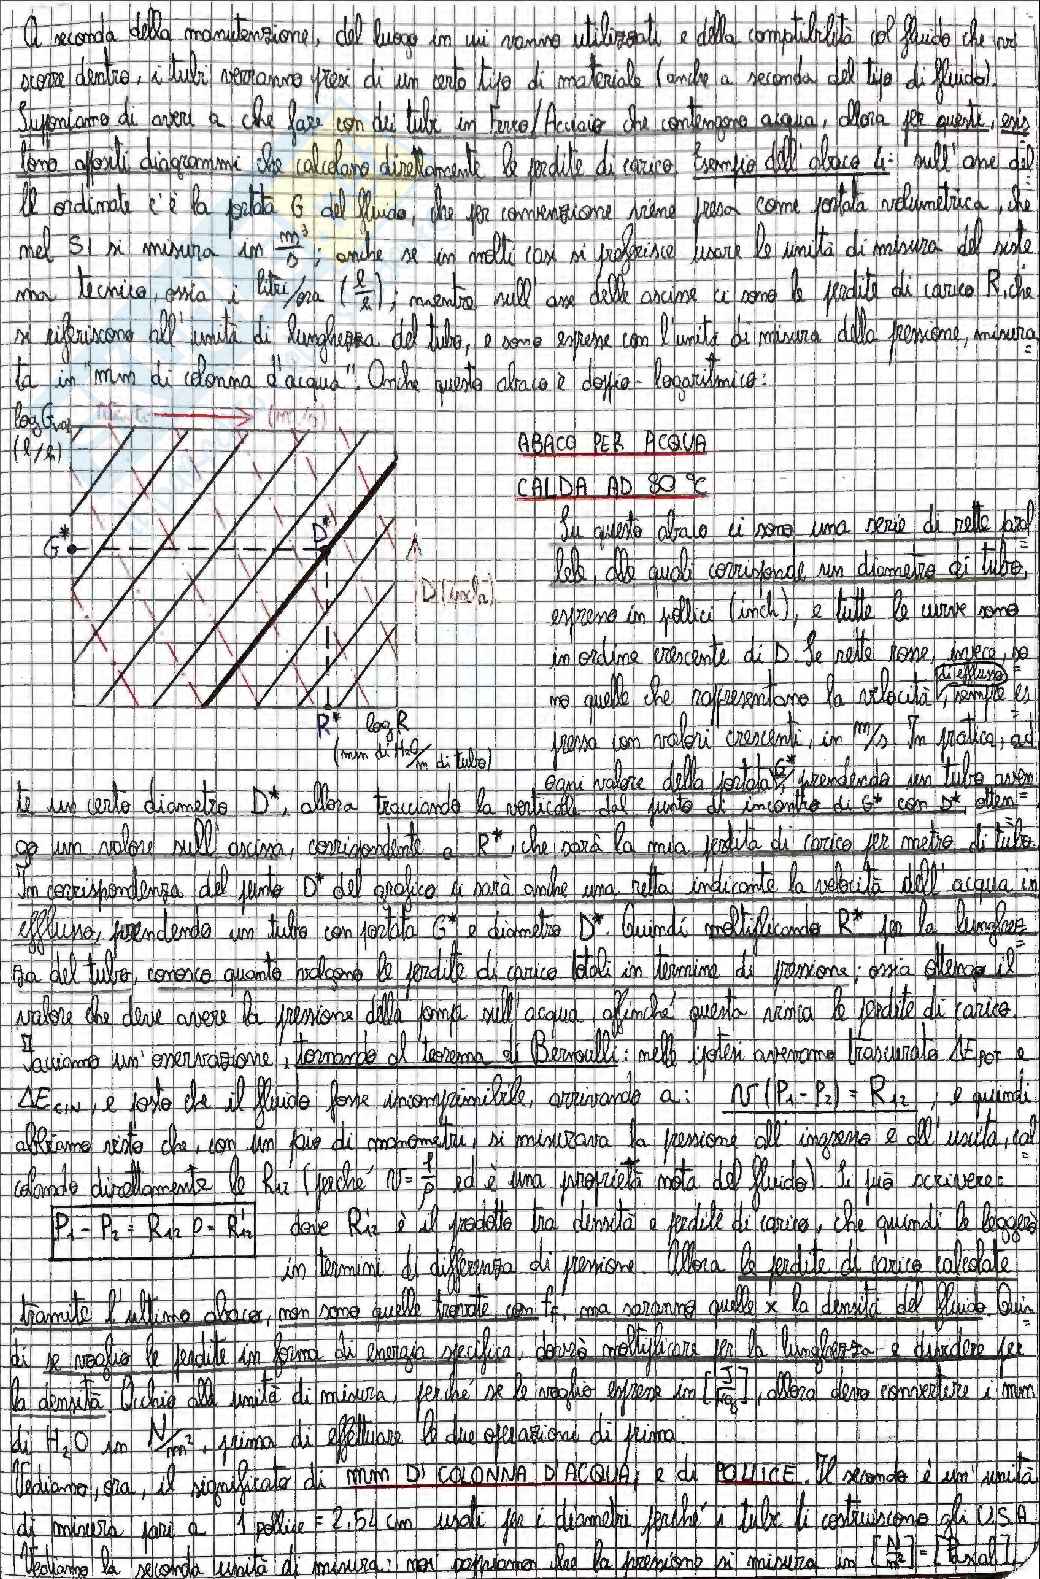 A seconda della manutenzione, del luogo in cui vanno utilizzati e della compatibilità col fluido che vi
scorre dentro, i tubi verranno presi di un certo tipo di materiale (anche a seconda del tipo di fluido).
Supponiamo di avere a che fare con dei tubi in Ferro/Acciaio che contengono acqua, allora per questi, esis
tono appositi diagrammi che calcolano direttamente le perdite di carico. Esempio dell'abaco 4: sull'asse del
le ordinate c'è la portata G del fluido, che per convenzione viene presa come portata volumetrica, che
nel SI si misura in m³/s; anche se in molti casi si preferisce usare le unità di misura del siste
ma tecnico, ossia i litri/ora (l/h); mentre sull'asse delle ascisse ci sono le perdite di carico R, che
si riferiscono all'unità di lunghezza del tubo, e sono espresse con l'unità di misura della pressione, misura
ta in "mm di colonna d'acqua". Anche questo abaco è doppio-logaritmico:
log Gvol
(l/h)
(m/s)
ABACO PER ACQUA
CALDA AD 80 °C
G*
D*
D (inch)
R*
log R
(mm di H₂O/m di tubo)
Su questo abaco ci sono una serie di rette paral
lele, alle quali corrisponde un diametro di tubo,
espresso in pollici (inch), e tutte le curve sono
in ordine crescente di D. Le rette rosse, invece, so
no quelle che rappresentano la velocità di efflusso, sempre es
pressa con valori crescenti, in m/s. In pratica, ad
ogni valore della portata G*, prendendo un tubo aven
te un certo diametro D*, allora tracciando la verticale dal punto di incontro di G* con D* otten
go un valore sull'ascissa, corrispondente a R*, che sarà la mia perdita di carico per metro di tubo.
In corrispondenza del punto D* del grafico ci sarà anche una retta indicante la velocità dell'acqua in
efflusso, prendendo un tubo con portata G* e diametro D*. Quindi moltiplicando R* per la lunghez
za del tubo, conosco quanto valgono le perdite di carico totali in termine di pressione; ossia ottengo il
valore che deve avere la pressione della pompa sull'acqua affinché questa vinca le perdite di carico.
Facciamo un'osservazione, tornando al teorema di Bernoulli: nelle ipotesi avevamo trascurato ΔEPOT e
ΔECIN, e posto che il fluido fosse incomprimibile, arrivando a: v(P₁-P₂) = R₁₂, e quindi
abbiamo visto che, con un paio di manometri, si misurava la pressione all'ingresso e all'uscita, cal
colando direttamente le R₁₂ (perché v = 1/ρ ed è una proprietà nota del fluido). Si può scrivere:
P₁ - P₂ = R₁₂ ρ = R₁₂' dove R₁₂' è il prodotto tra densità e perdite di carico, che quindi le leggerò
in termini di differenza di pressione. Allora le perdite di carico calcolate
tramite l'ultimo abaco, non sono quelle trovate con f, ma saranno quelle x la densità del fluido. Quin
di se voglio le perdite in forma di energia specifica, dovrò moltiplicare per la lunghezza e dividere per
la densità. Occhio alle unità di misura, perché se le voglio espresse in [J/kg], allora devo convertire i mm
di H₂O in N/m², prima di effettuare le due operazioni di prima.
Vediamo, ora, il significato di MM DI COLONNA D'ACQUA, e di POLLICE. Il secondo è un'unità
di misura pari a 1 pollice = 2,54 cm usati per i diametri perché i tubi li costruiscono gli U.S.A.
Vediamo la seconda unità di misura: noi sappiamo che la pressione si misura in [N/m²] = [Pascal],